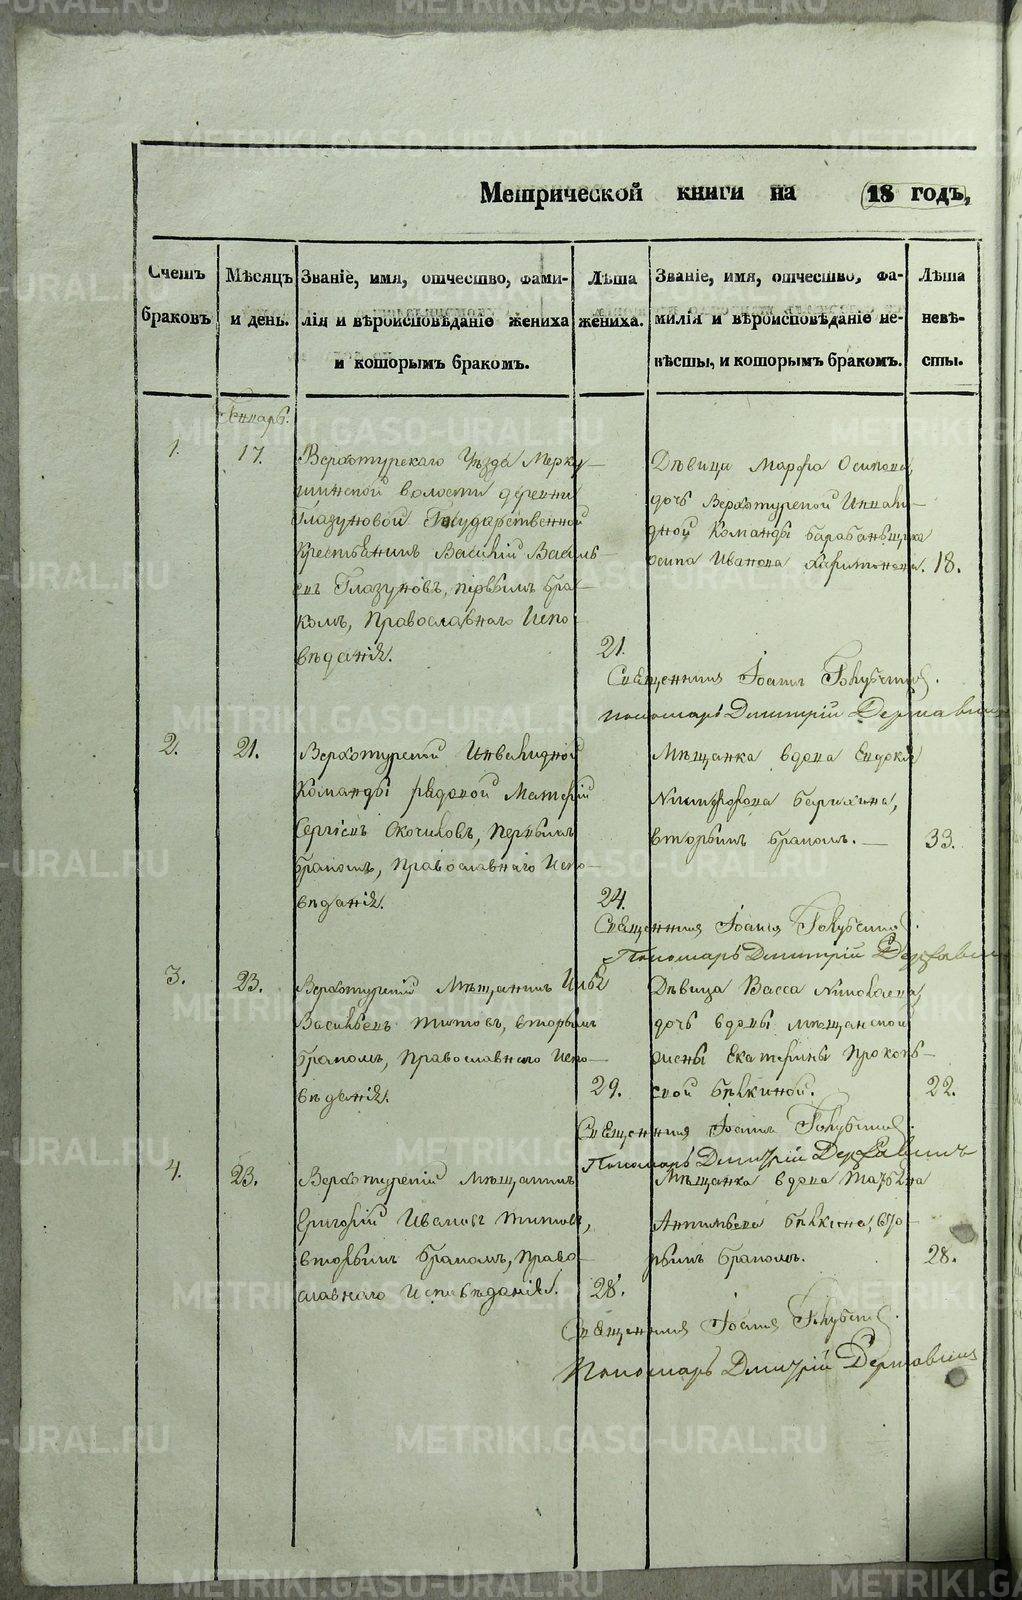 Метрической книги на 18 годъ,
Счетъ браковъ
Мѣсяцъ и день.
Званіе, имя, отчество, фами-
лія и вѣроисповѣданіе жениха
и которымъ бракомъ.
Лѣта
жениха.
Званіе, имя, отчество, фа-
милія и вѣроисповѣданіе не-
вѣсты, и которымъ бракомъ.
Лѣта
невѣ-
сты.
Генварь.
1.
17.
Верхотурскаго Уѣзда Мерку-
шинской волости деревни
Глазуновой Государственной
Крестьянинъ Василій Василь-
евъ Глазуновъ, первымъ бра-
комъ, Православнаго Испо-
вѣданія.
21.
Дѣвица Марфа Осипова,
дочь Верхотурской Инвали-
дной Команды барабанщика
Осипа Иванова Харитонова.
18.
Священникъ Іоаннъ
Пономарь Димитрій Державинъ
2.
21.
Верхотурской Инвалидной
Команды рядовой
Сергіевъ первымъ
бракомъ, Православнаго Испо-
вѣданія.
24.
Мѣщанка вдова Евдокія
Никифорова
вторымъ бракомъ.
33.
Священникъ Іоаннъ
Пономарь Димитрій Державинъ
3.
23.
Верхотурскій Мѣщанинъ Илья
Васильевъ Титовъ, вторымъ
бракомъ, Православнаго Испо-
вѣданія.
29.
Дѣвица Васса Николаева,
дочь вдовы мѣщанской
жены Екатерины Прокопь-
евой Бѣлкиной.
22.
Священникъ Іоаннъ
Пономарь Димитрій Державинъ
4.
23.
Верхотурскій Мѣщанинъ
Григорій Ивановъ Титовъ,
вторымъ бракомъ, Право-
славнаго Исповѣданія.
28.
Мѣщанка вдова Татьяна
Антипьева Бѣлкина, вто-
рымъ бракомъ.
28.
Священникъ Іоаннъ
Пономарь Димитрій Державинъ
METRIKI.GASO-URAL.RU